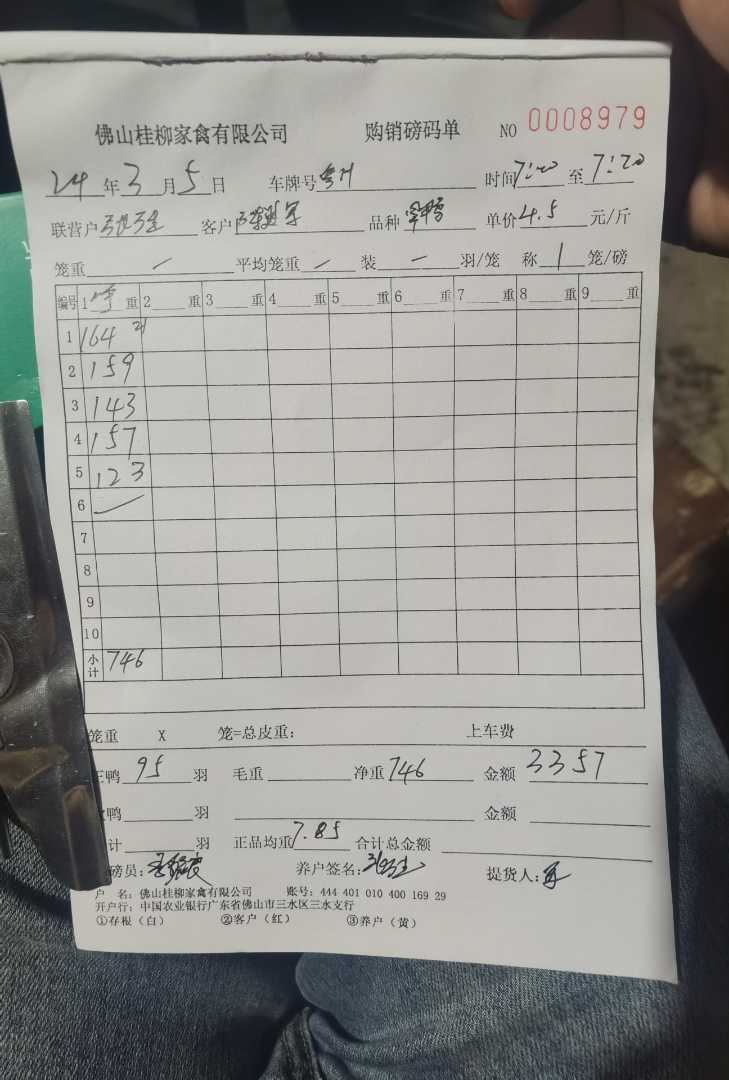 佛山桂柳家禽有限公司 购销磅码单 NO 0008979
24年3月5日 车牌号 时间7:00至7:20
联营户 客户 品种 单价4.5元/斤
笼重 — 平均笼重 — 装 — 羽/笼 称 1 笼/磅
编号 1 重 2 重 3 重 4 重 5 重 6 重 7 重 8 重 9 重
1 164
2 159
3 143
4 157
5 123
6 —
7
8
9
10
小计 746
笼重 X 笼=总皮重: 上车费
正鸭 95 羽 毛重 净重 746 金额 3357
鸭 羽 金额
计 羽 正品均重 7.85 合计总金额
磅员: 养户签名: 提货人:
户 名: 佛山桂柳家禽有限公司 账号: 444 401 010 400 169 29
开户行: 中国农业银行广东省佛山市三水区三水支行
①存根(白) ②客户(红) ③养户(黄)